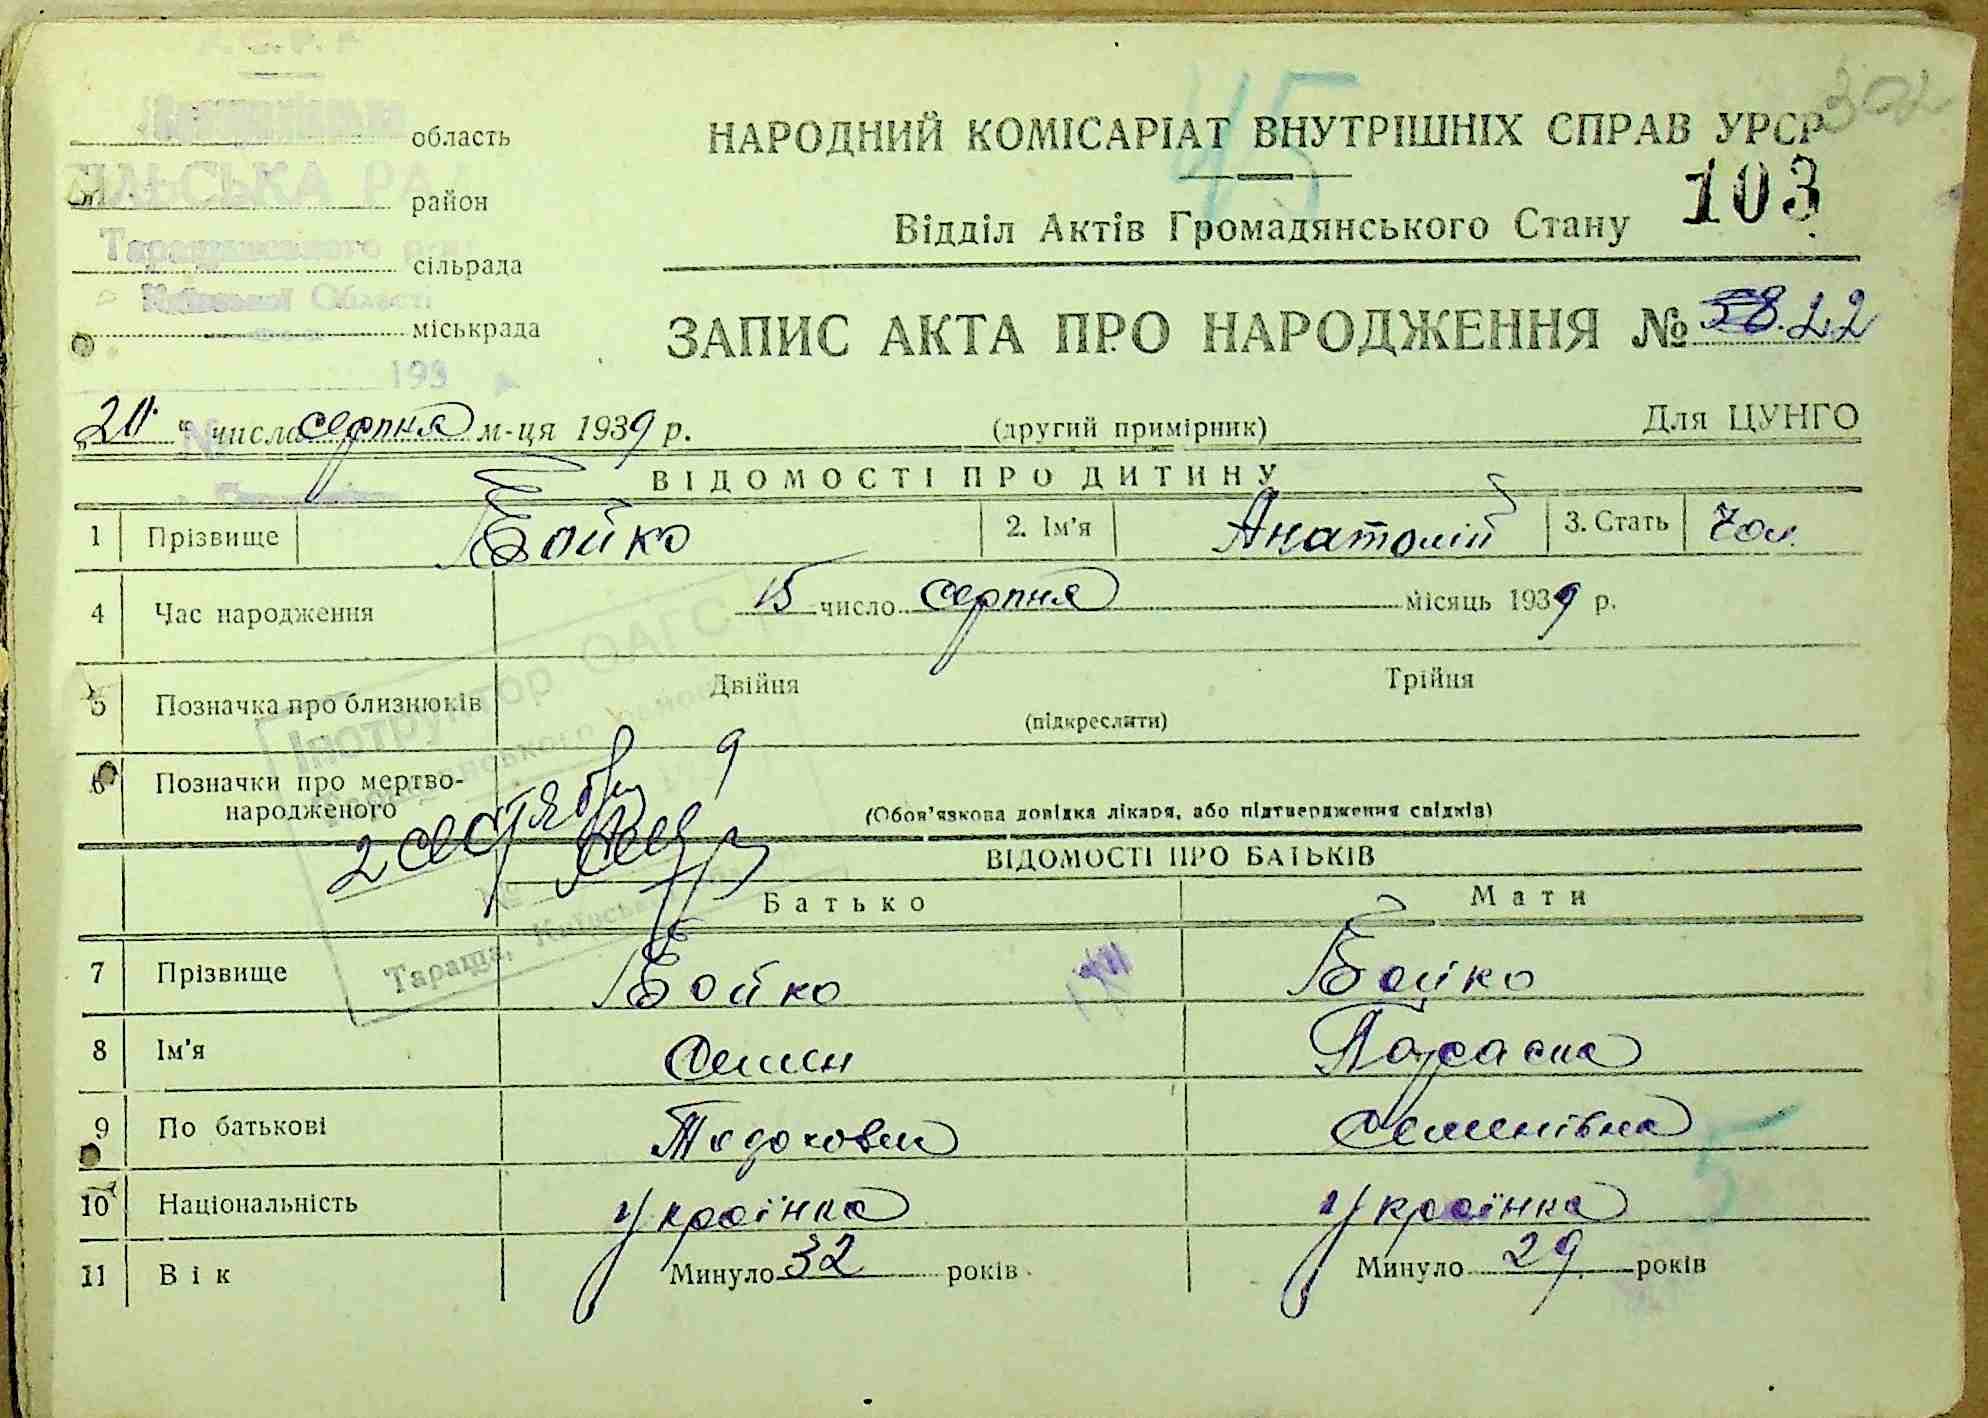 302
45
область
район
сільрада
міськрада
СІЛЬСЬКА РАДА
Таращанського
Київської Області
193
№
НАРОДНИЙ КОМІСАРІАТ ВНУТРІШНІХ СПРАВ УРСР
103
Відділ Актів Громадянського Стану
ЗАПИС АКТА ПРО НАРОДЖЕННЯ № 58. 22
„20“ числа серпня м-ця 1939 р. (другий примірник) Для ЦУНГО
ВІДОМОСТІ ПРО ДИТИНУ
1 Прізвище Бойко 2. Ім'я Анатолій 3. Стать Чол.
4 Час народження 15 число серпня місяць 1939 р.
5 Позначка про близнюків Двійня Трійня
(підкреслити)
6 Позначки про мертво-
народженого (Обов'язкова довідка лікаря, або підтвердження свідків)
Інструктор ОАГС
2 9
№
Тараща, Київської
ВІДОМОСТІ ПРО БАТЬКІВ
Батько Мати
7 Прізвище Бойко Бойко
8 Ім'я Семен Параска
9 По батькові Тодохови Семенівна
5
10 Національність українка українка
11 Вік Минуло 32 років Минуло 29 років